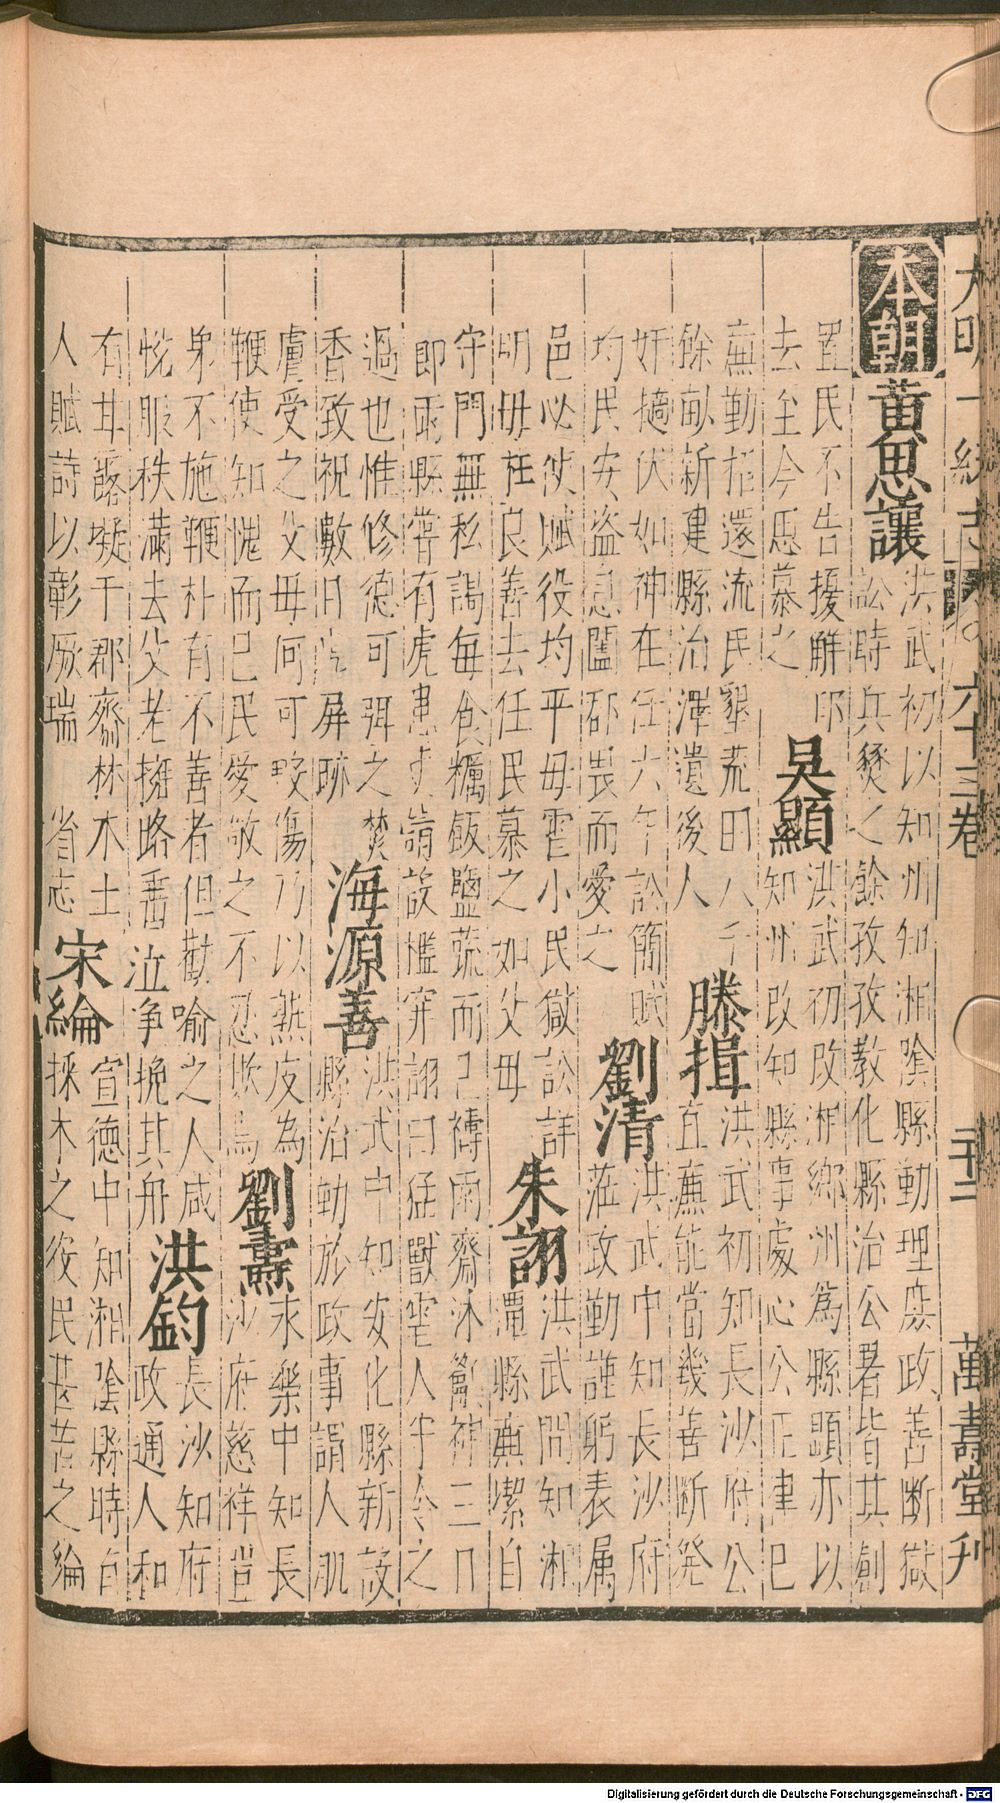 大明一統志 卷之六十三卷 二十二 萬壽堂刋
本朝黃思讓
洪武初以知州知湘隂縣勤理庶政善斷獄
訟時兵燹之餘孜孜教化縣治公署皆其創
置民不告擾解印
去至今思慕之
吳顯
洪武初改湘鄉州爲縣顯亦以
知州改知縣事處心公正律己
亷勤招還流民墾荒田八千
餘畝新建縣治澤遺後人
滕揖
洪武初知長沙府公
直亷能當幾善斷発
奸擿伏如神在任六年訟簡賦
均民安盜息闔郡畏而愛之
劉清
洪武中知長沙府
蒞政勤謹躬表属
邑必使賦役均平毋䨥小民獄訟詳
明毋枉良善去任民慕之如父母
朱詡
洪武間知湘
潭縣亷潔自
守門無私謁每食糲飯鹽蔬而已禱雨齋沐籲神三日
即雨縣嘗有虎患才嶺設檻穽詡曰猛獸害人乎令之
過也惟修德可弭之焚
香致祝數日虎屏跡
海源善
洪武中知安化縣新設
縣治勤於政事謂人肌
膚受之父母何可毁傷乃以熟皮為
鞭使知愧而已民愛敬之不忍欺焉
劉燾
永樂中知長
沙府慈祥豈
弟不施鞭朴有不善者但勸喻之人咸
悅服秩滿去父老擁路垂泣争挽其舟
洪鈞
長沙知府
政通人和
有甘露凝于郡齋林木土
人賦詩以彰厥瑞 省志
宋綸
宣德中知湘隂縣時自
採木之役民甚苦之綸